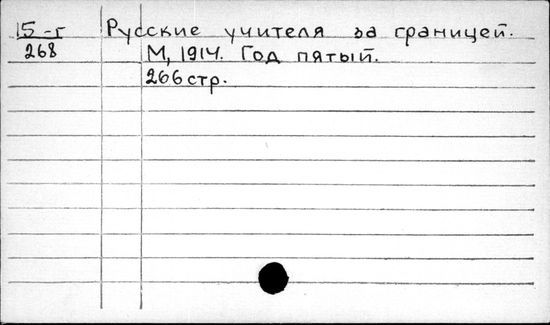 15-г Русские учителя за границей.
268 М, 1914. Год пятый.
266 стр.